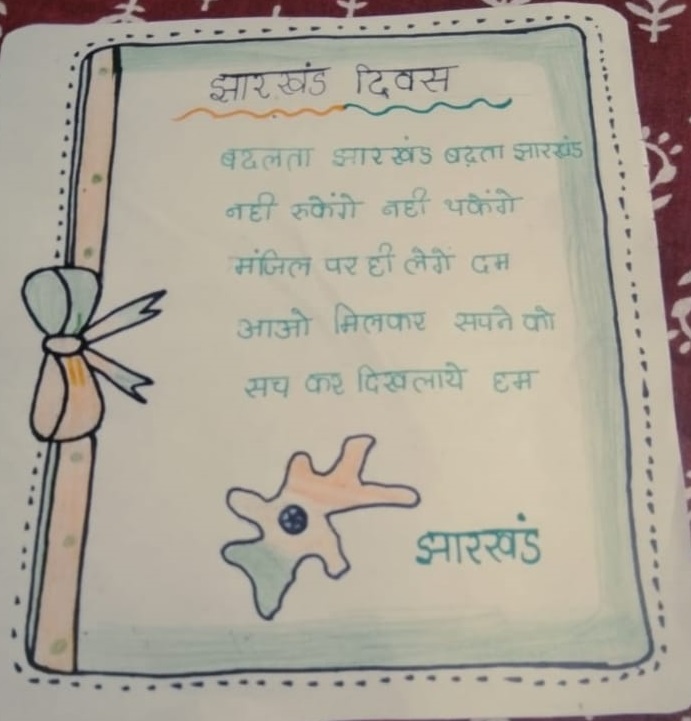 झारखंड दिवस
बदलता झारखंड बढ़ता झारखंड
नही रुकेंगे नही थकेंगे
मंजिल पर ही लेगें दम
आओ मिलकर सपने को
सच कर दिखलाये हम
झारखंड